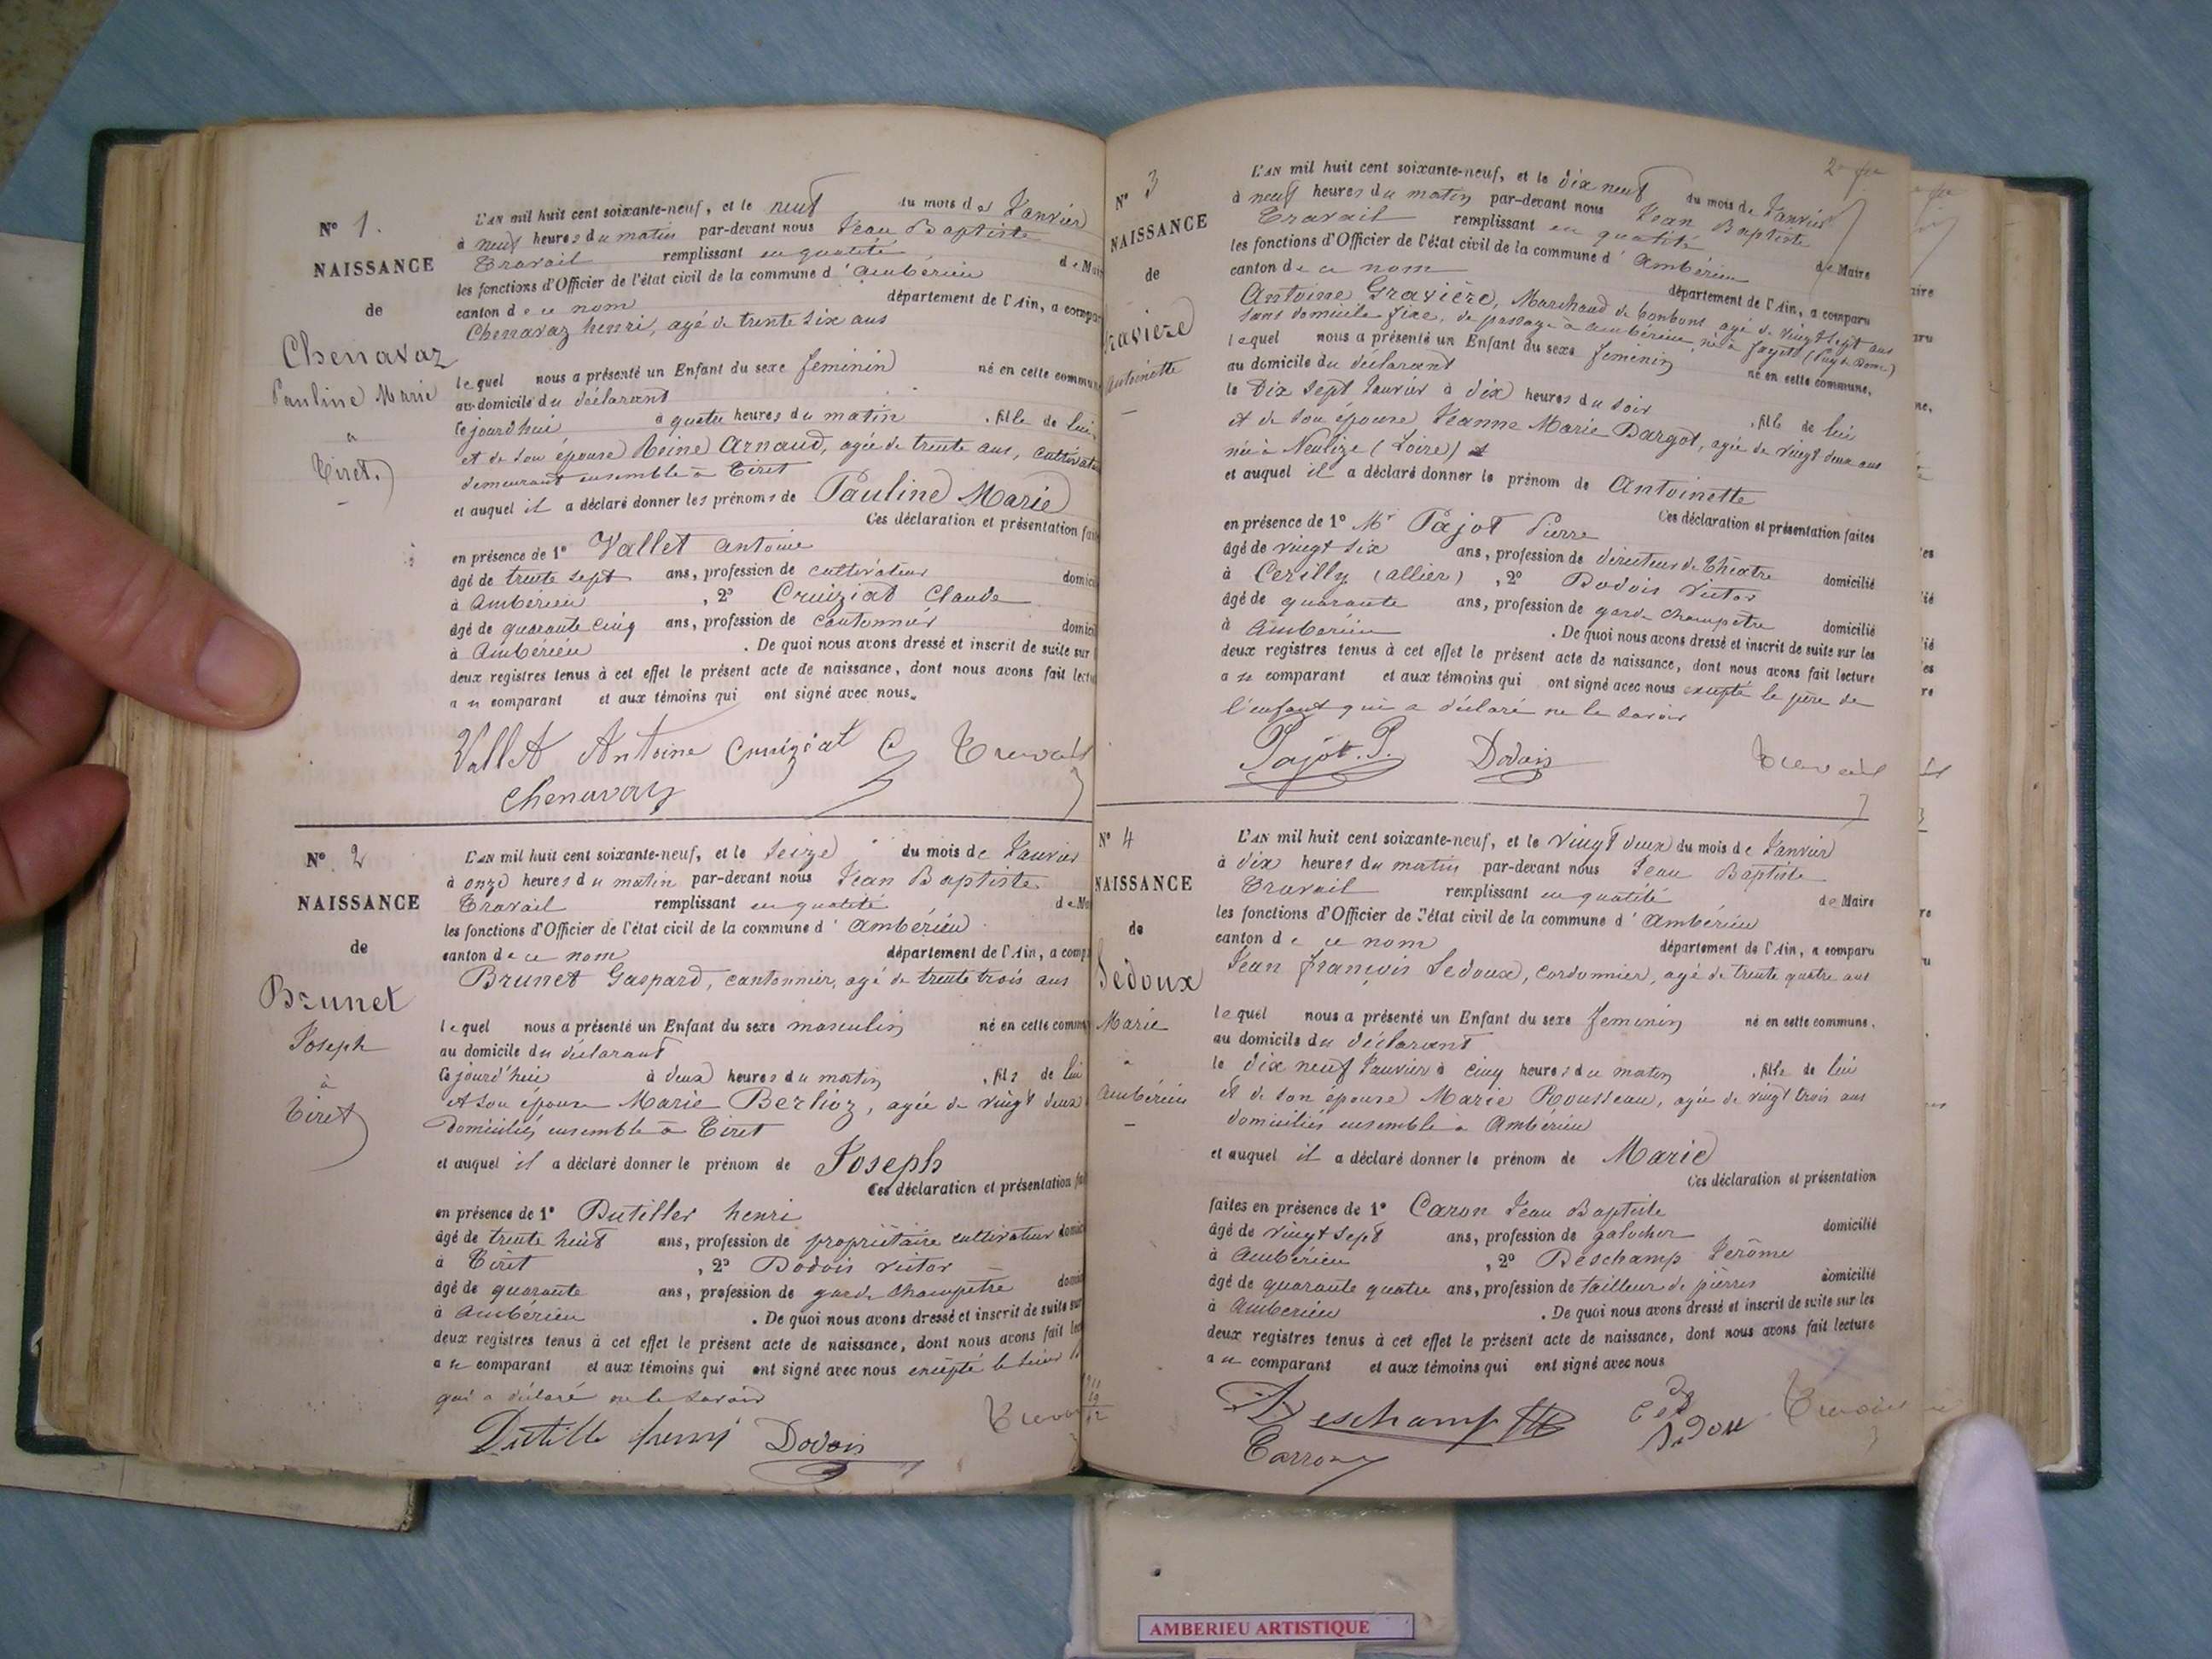 N° 1.
NAISSANCE
de
Chenavaz
Pauline Marie
à
Tiret.
L'AN mil huit cent soixante-neuf, et le neuf du mois de Janvier
à neuf heures du matin par-devant nous Jean Baptiste
Travail remplissant en qualité de Mai
les fonctions d'Officier de l'état civil de la commune d'Ambérieu
canton de ce nom département de l'Ain, a compa
Chenavaz henri, agé de trente six ans
lequel nous a présenté un Enfant du sexe feminin né en cette commune
au domicile du déclarant
Cejourd'hui à quatre heures du matin, fille de lui
et de son épouse Reine Arnaud, agée de trente ans, cultivate
demeurant ensemble à Tiret
et auquel il a déclaré donner les prénoms de Pauline Marie
Ces déclaration et présentation fai
en présence de 1° Vallet Antoine
âgé de trente sept ans, profession de cultivateur domici
à Ambérieu, 2° Cruiziat Claude
âgé de quarante cinq ans, profession de cantonnier domici
à Ambérieu. De quoi nous avons dressé et inscrit de suite sur
deux registres tenus à cet effet le présent acte de naissance, dont nous avons fait lectu
au comparant et aux témoins qui ont signé avec nous.
Vallet Antoine Cruiziat C Travail
Chenavaz
N° 2
NAISSANCE
de
Brunet
Joseph
à
Tiret
L'AN mil huit cent soixante-neuf, et le seize du mois de Janvier
à onze heures du matin par-devant nous Jean Baptiste
Travail remplissant en qualité de Ma
les fonctions d'Officier de l'état civil de la commune d'Ambérieu
canton de ce nom département de l'Ain, a comp
Brunet Gaspard, cantonnier, agé de trente trois ans
lequel nous a présenté un Enfant du sexe masculin né en cette comm
au domicile du déclarant
Cejourd'hui à deux heures du matin, fils de lui
et son épouse Marie Berlioz, agée de vingt deux
Domiciliés ensemble à Tiret
et auquel il a déclaré donner le prénom de Joseph
Ces déclaration et présentation fai
en présence de 1° Dutiller henri
âgé de trente huit ans, profession de propriétaire cultivateur domici
à Tiret, 2° Dodois Victor
âgé de quarante ans, profession de garde champêtre domici
à Ambérieu. De quoi nous avons dressé et inscrit de suite sur
deux registres tenus à cet effet le présent acte de naissance, dont nous avons fait lec
au comparant et aux témoins qui ont signé avec nous excepté le
qui a déclaré ne le savoir
henri Dodois
N° 3
NAISSANCE
de
ravière
Antoinette
L'AN mil huit cent soixante-neuf, et le dix neuf du mois de Janvier
à neuf heures du matin par-devant nous Jean Baptiste
Travail remplissant en qualité de Maire
les fonctions d'Officier de l'état civil de la commune d'Ambérieu
canton de ce nom département de l'Ain, a comparu
Antoine Gravière, Marchand de bonbons agé de vingt sept ans
sans domicile fixe, de passage à Ambérieu, né à (Puy de Dome)
lequel nous a présenté un Enfant du sexe feminin né en cette commune.
au domicile du déclarant
le Dix sept Janvier à dix heures du soir, fille de lui
et de son épouse Jeanne Marie Dargot, agée de vingt deux ans
née à Neulize (Loire)
et auquel il a déclaré donner le prénom de Antoinette
Ces déclaration et présentation faites
en présence de 1° Mr Pajot Pierre
âgé de vingt six ans, profession de directeur de Théatre domicilié
à Cerilly (allier), 2° Dodois Victor
âgé de quarante ans, profession de garde champêtre domicilié
à Ambérieu. De quoi nous avons dressé et inscrit de suite sur les
deux registres tenus à cet effet le présent acte de naissance, dont nous avons fait lecture
au comparant et aux témoins qui ont signé avec nous excepté le père de
l'enfant qui a déclaré ne le savoir
Pajot. P. Dodois Travail
N° 4
NAISSANCE
de
Sedoux
Marie
à
Ambérieu
L'AN mil huit cent soixante-neuf, et le vingt deux du mois de Janvier
à dix heures du matin par-devant nous Jean Baptiste
Travail remplissant en qualité de Maire
les fonctions d'Officier de l'état civil de la commune d'Ambérieu
canton de ce nom département de l'Ain, a comparu
Jean françois Sedoux, cordonnier, agé de trente quatre ans
lequel nous a présenté un Enfant du sexe feminin né en cette commune.
au domicile du déclarant
le dix neuf Janvier à cinq heures du matin, fille de lui
et de son épouse Marie Rousseau, agée de vingt trois ans
domiciliés ensemble à Ambérieu
et auquel il a déclaré donner le prénom de Marie
Ces déclaration et présentation
faites en présence de 1° Caron Jean Baptiste
âgé de vingt sept ans, profession de galocher domicilié
à Ambérieu, 2° Deschamp Jerôme
âgé de quarante quatre ans, profession de tailleur de pierres domicilié
à Ambérieu. De quoi nous avons dressé et inscrit de suite sur les
deux registres tenus à cet effet le présent acte de naissance, dont nous avons fait lecture
au comparant et aux témoins qui ont signé avec nous
Deschamp Travail
Carron
AMBERIEU ARTISTIQUE